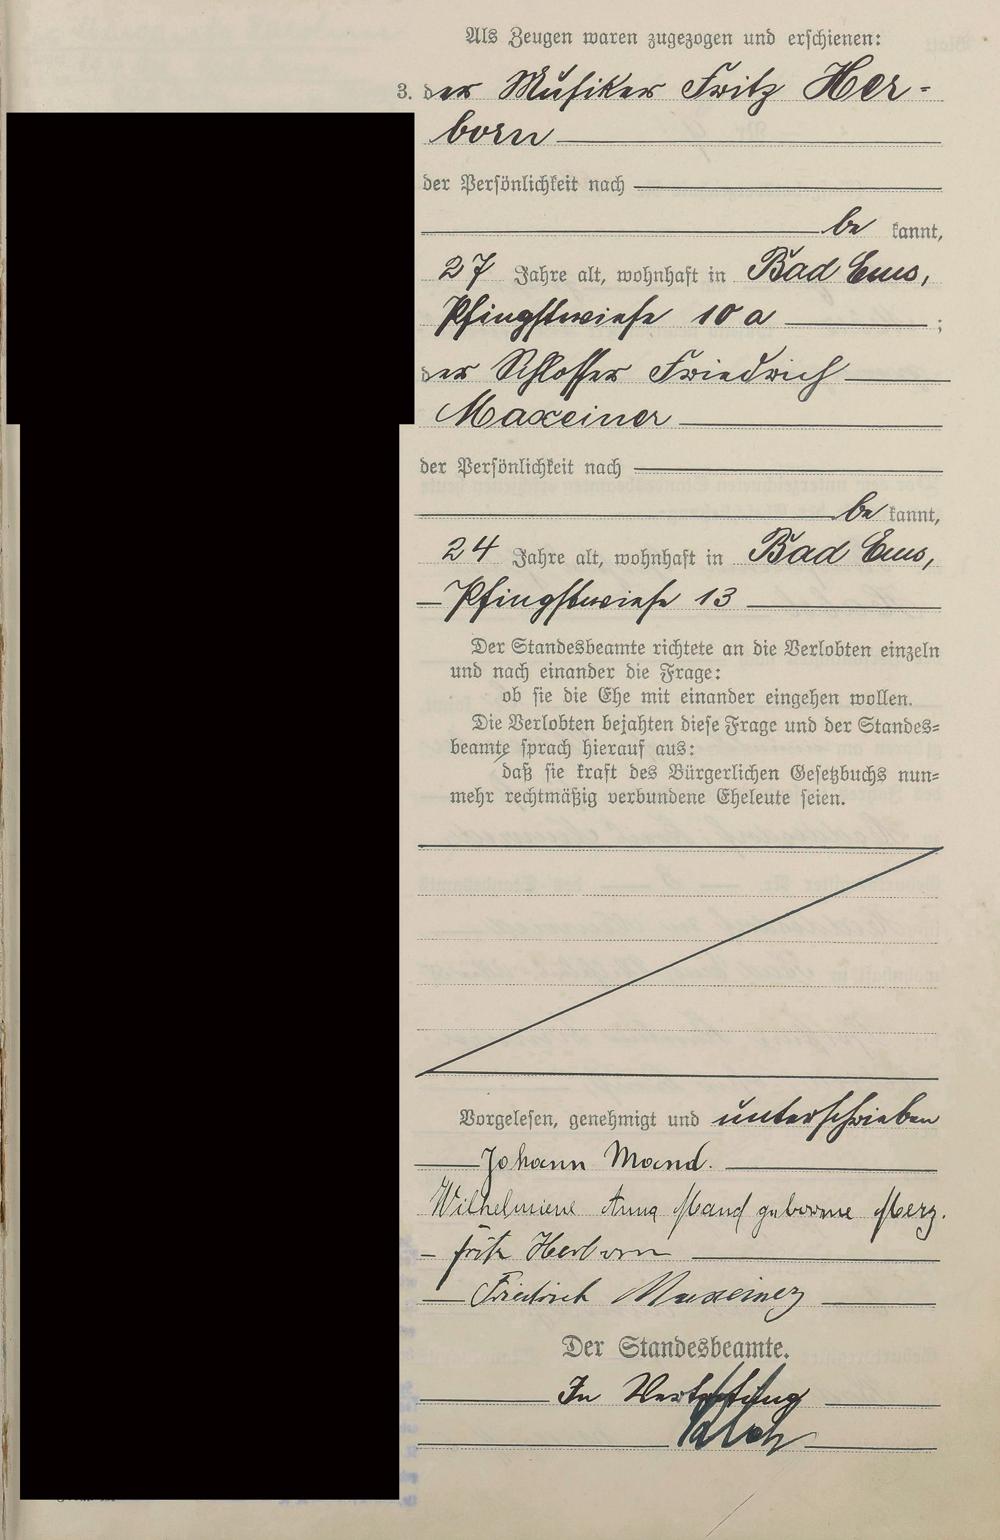 Als Zeugen waren zugezogen und erschienen:
3. der Musiker Fritz Her-
born
der Persönlichkeit nach
be kannt,
27 Jahre alt, wohnhaft in Bad Ems,
Pfingstwiese 10 a ;
der Schlosser Friedrich
Maxeiner
der Persönlichkeit nach
be kannt,
24 Jahre alt, wohnhaft in Bad Ems,
Pfingstwiese 13
Der Standesbeamte richtete an die Verlobten einzeln
und nach einander die Frage:
ob sie die Ehe mit einander eingehen wollen.
Die Verlobten bejahten diese Frage und der Standes-
beamte sprach hierauf aus:
daß sie kraft des Bürgerlichen Gesetzbuchs nun-
mehr rechtmäßig verbundene Eheleute seien.
Vorgelesen, genehmigt und unterschrieben
Johann Mand.
Wilhelmiene Anna Mand geborene Merz.
Fritz Herborn
Friedrich Maxeiner
Der Standesbeamte.
In Vertretung